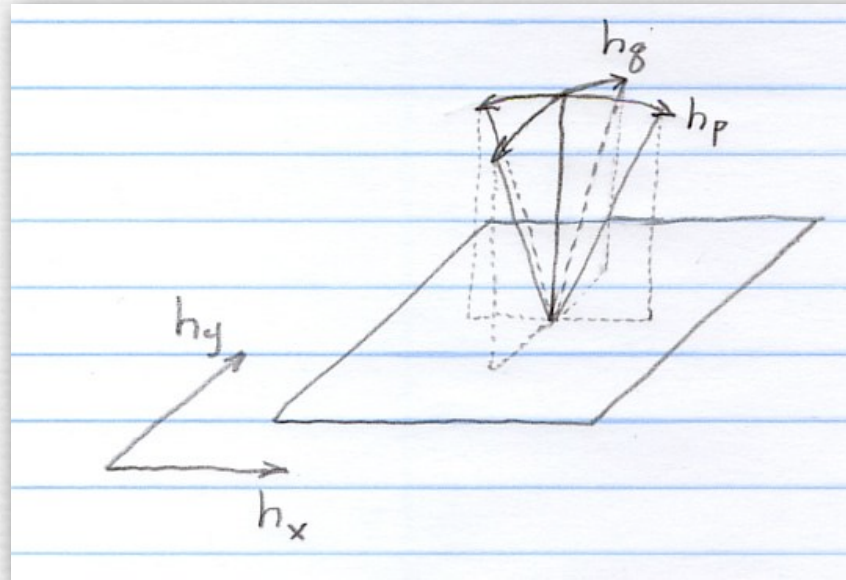 hq
hp
hy
hx